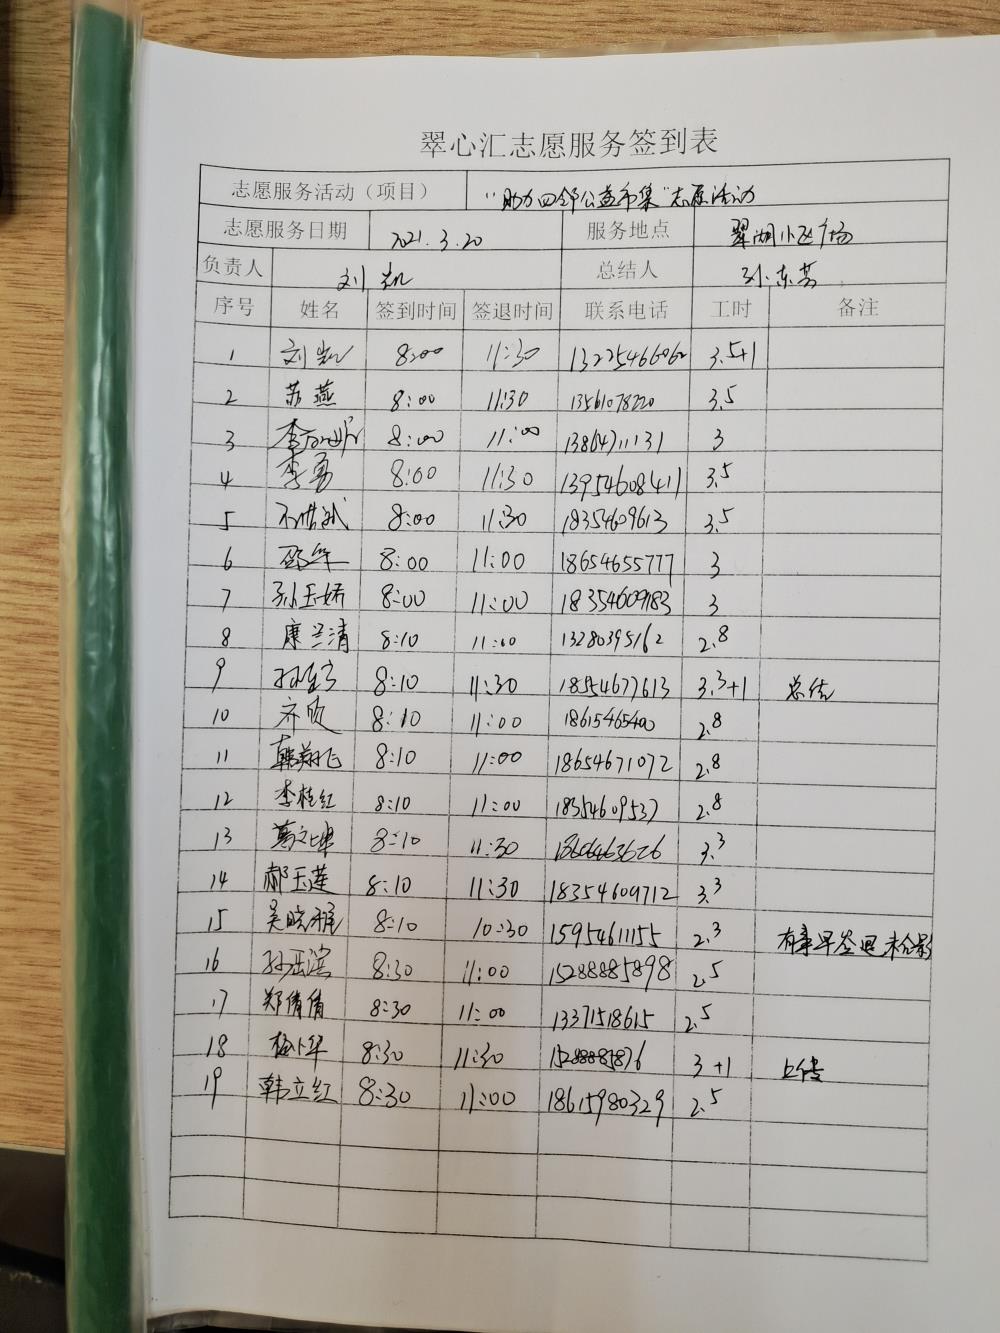 翠心汇志愿服务签到表
志愿服务活动（项目） "助力四邻公益市集"志愿活动
志愿服务日期 2021.3.20 服务地点 翠湖小区广场
负责人 刘凯 总结人 孙东芳
序号 姓名 签到时间 签退时间 联系电话 工时 备注
1 刘凯 8:00 11:30 13225466062 3.5+1
2 苏燕 8:00 11:30 13561078220 3.5
3 8:00 11:00 13864711131 3
4 李勇 8:00 11:30 13954608411 3.5
5 8:00 11:30 18354609613 3.5
6 8:00 11:00 18654655777 3
7 孙玉娇 8:00 11:00 18354609183 3
8 康兰清 8:10 11:00 13280395162 2.8
9 8:10 11:30 18554677613 3.3+1 总结
10 齐欣 8:10 11:00 18615465400 2.8
11 韩翔飞 8:10 11:00 18654671072 2.8
12 李桂红 8:10 11:00 18354609537 2.8
13 8:10 11:30 3.3
14 郝玉莲 8:10 11:30 18354609712 3.3
15 吴晓雁 8:10 10:30 15954611155 2.3 有事早签退 未合影
16 孙岳滨 8:30 11:00 15288885898 2.5
17 郑倩倩 8:30 11:00 13371518615 2.5
18 8:30 11:30 3+1 上传
19 韩立红 8:30 11:00 18615980329 2.5